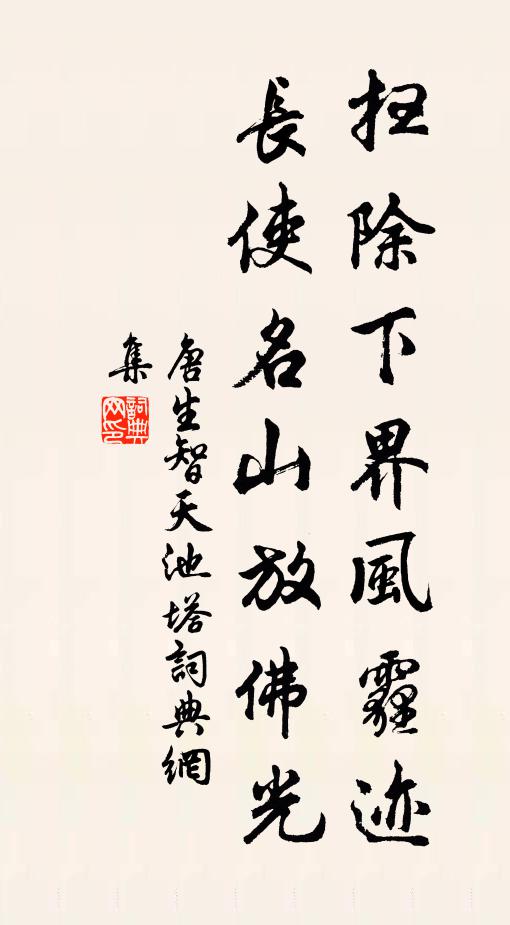 扫除下界風霾迹
長使名山放佛光
唐生智天池塔詞典網
集
詞典网印